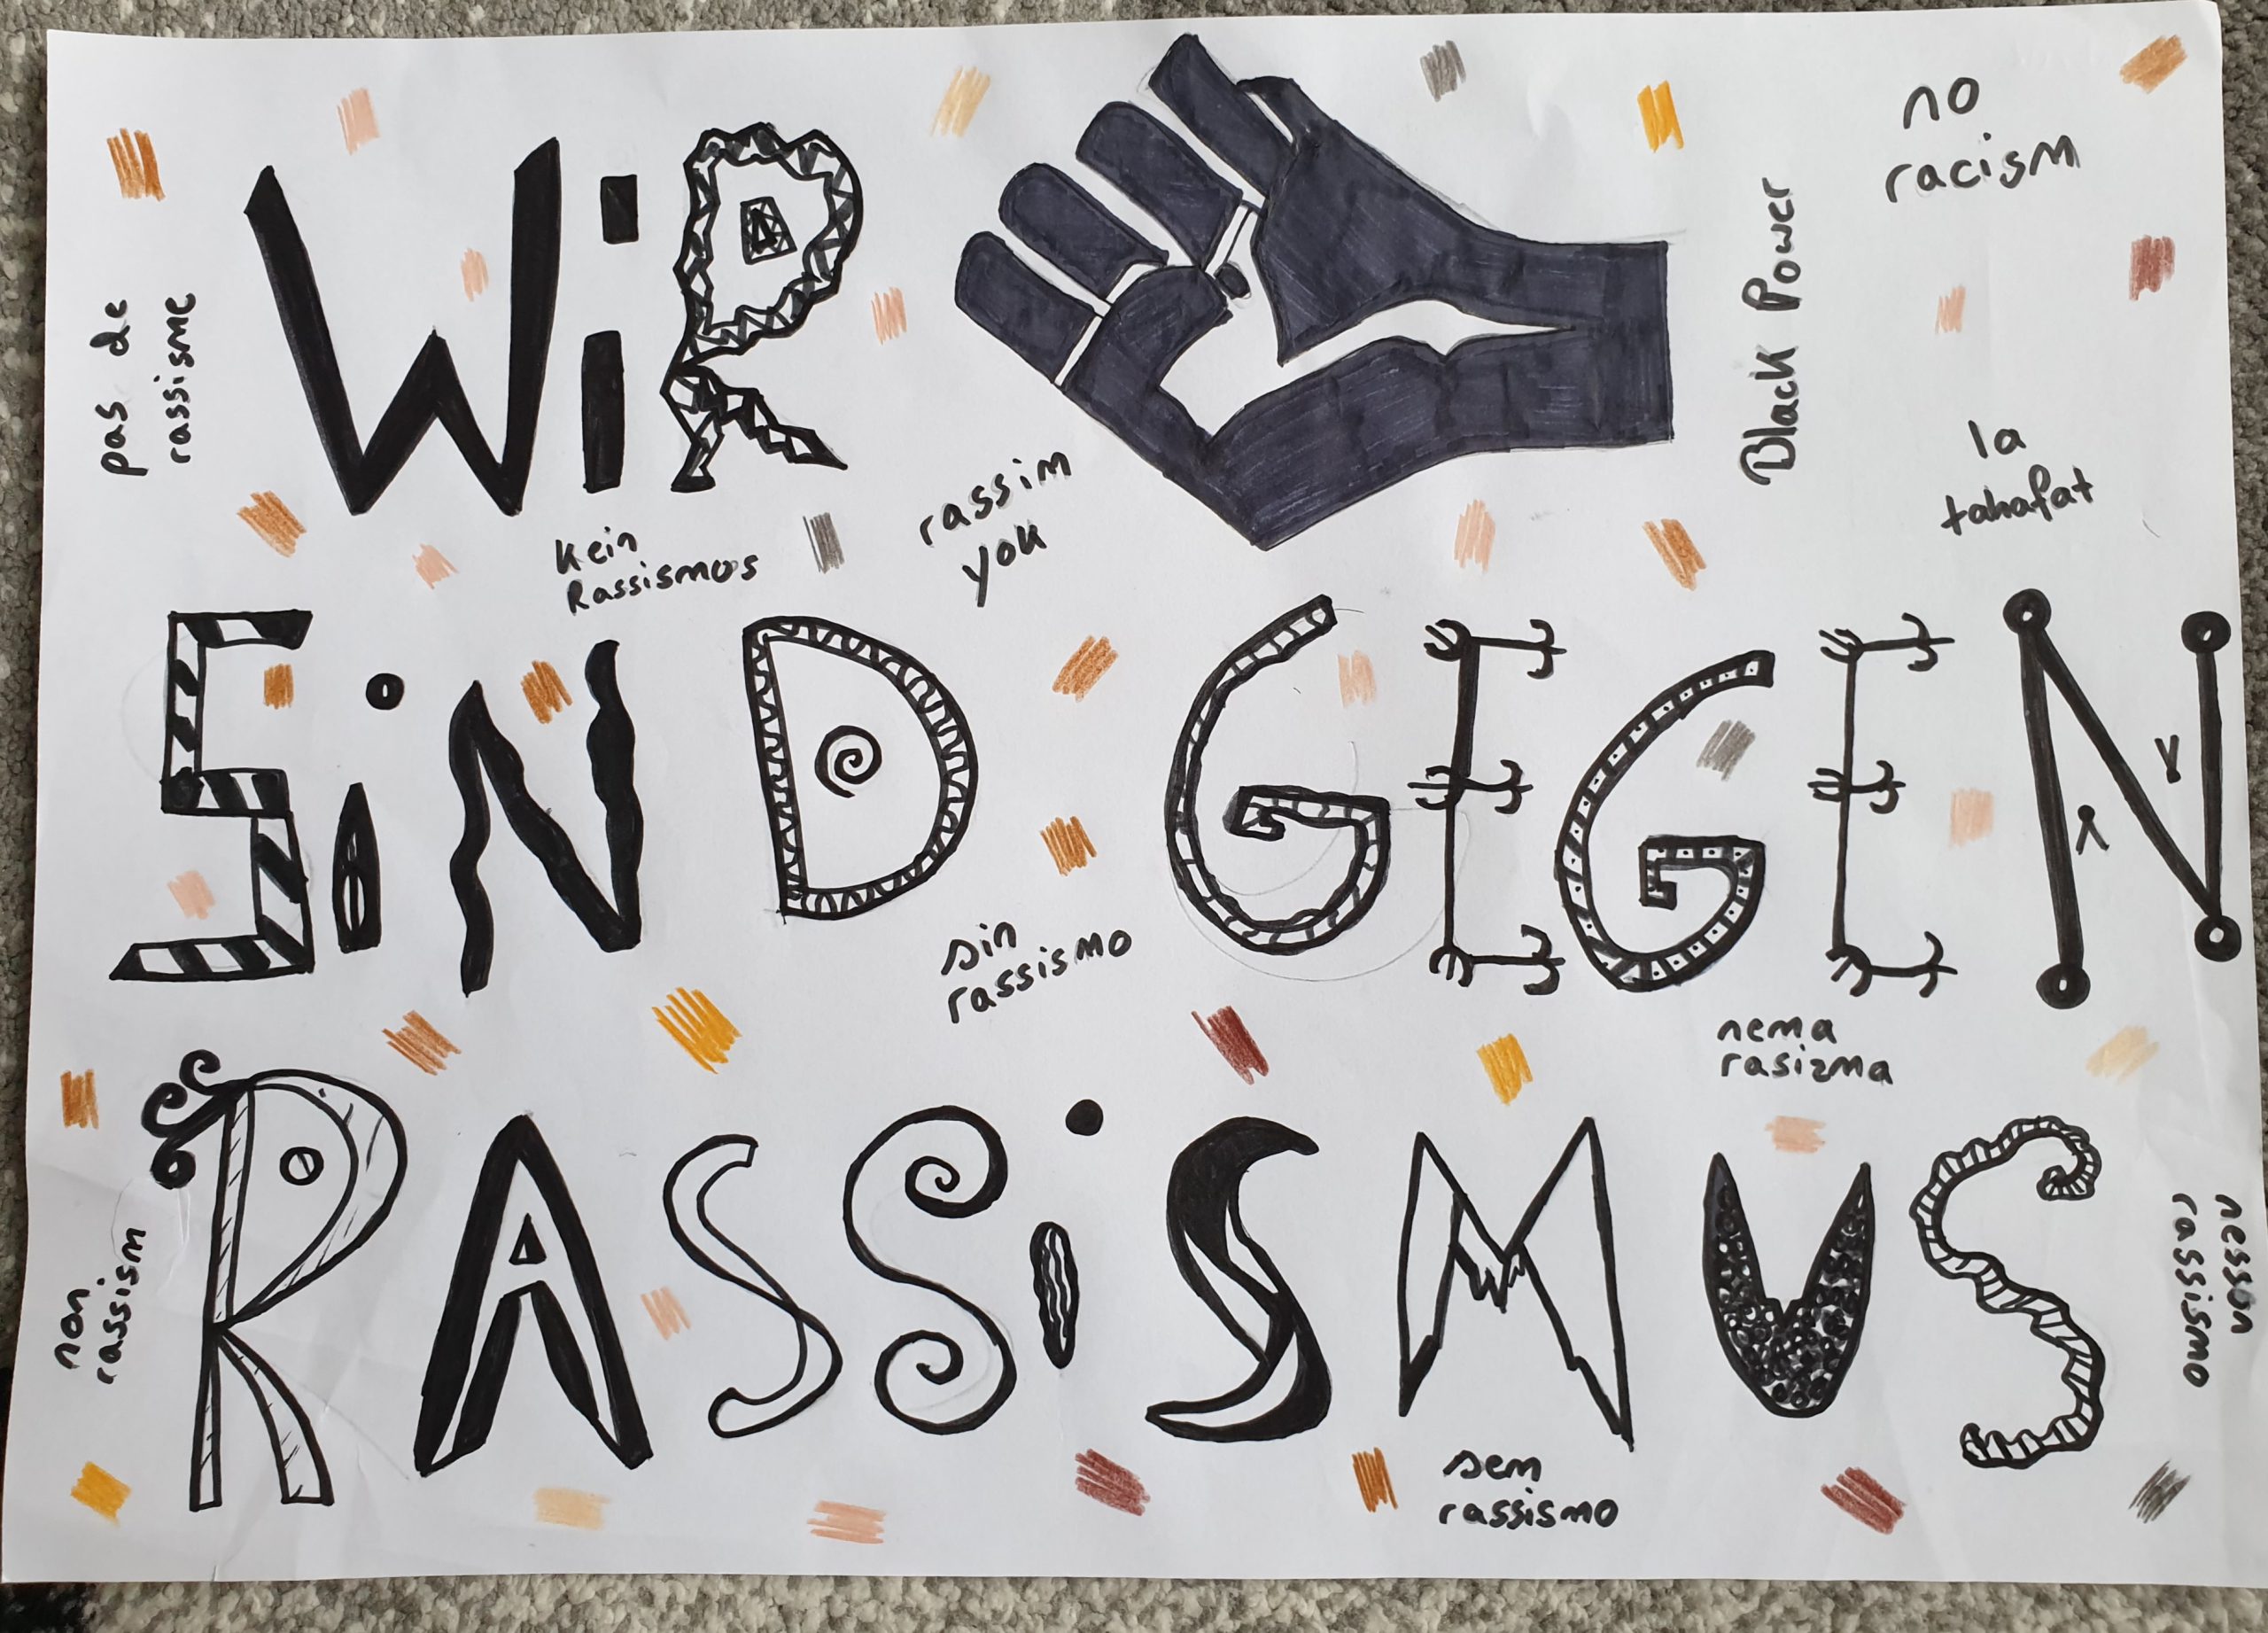 WiR
no
racism
Black Power
pas de
rassisme
la
tahafat
rassim
yok
kein
Rassismos
SiND GEGEN
sin
rassismo
nema
rasizma
RASSiSMUS
non
rassism
nesson
rassismo
sem
rassismo